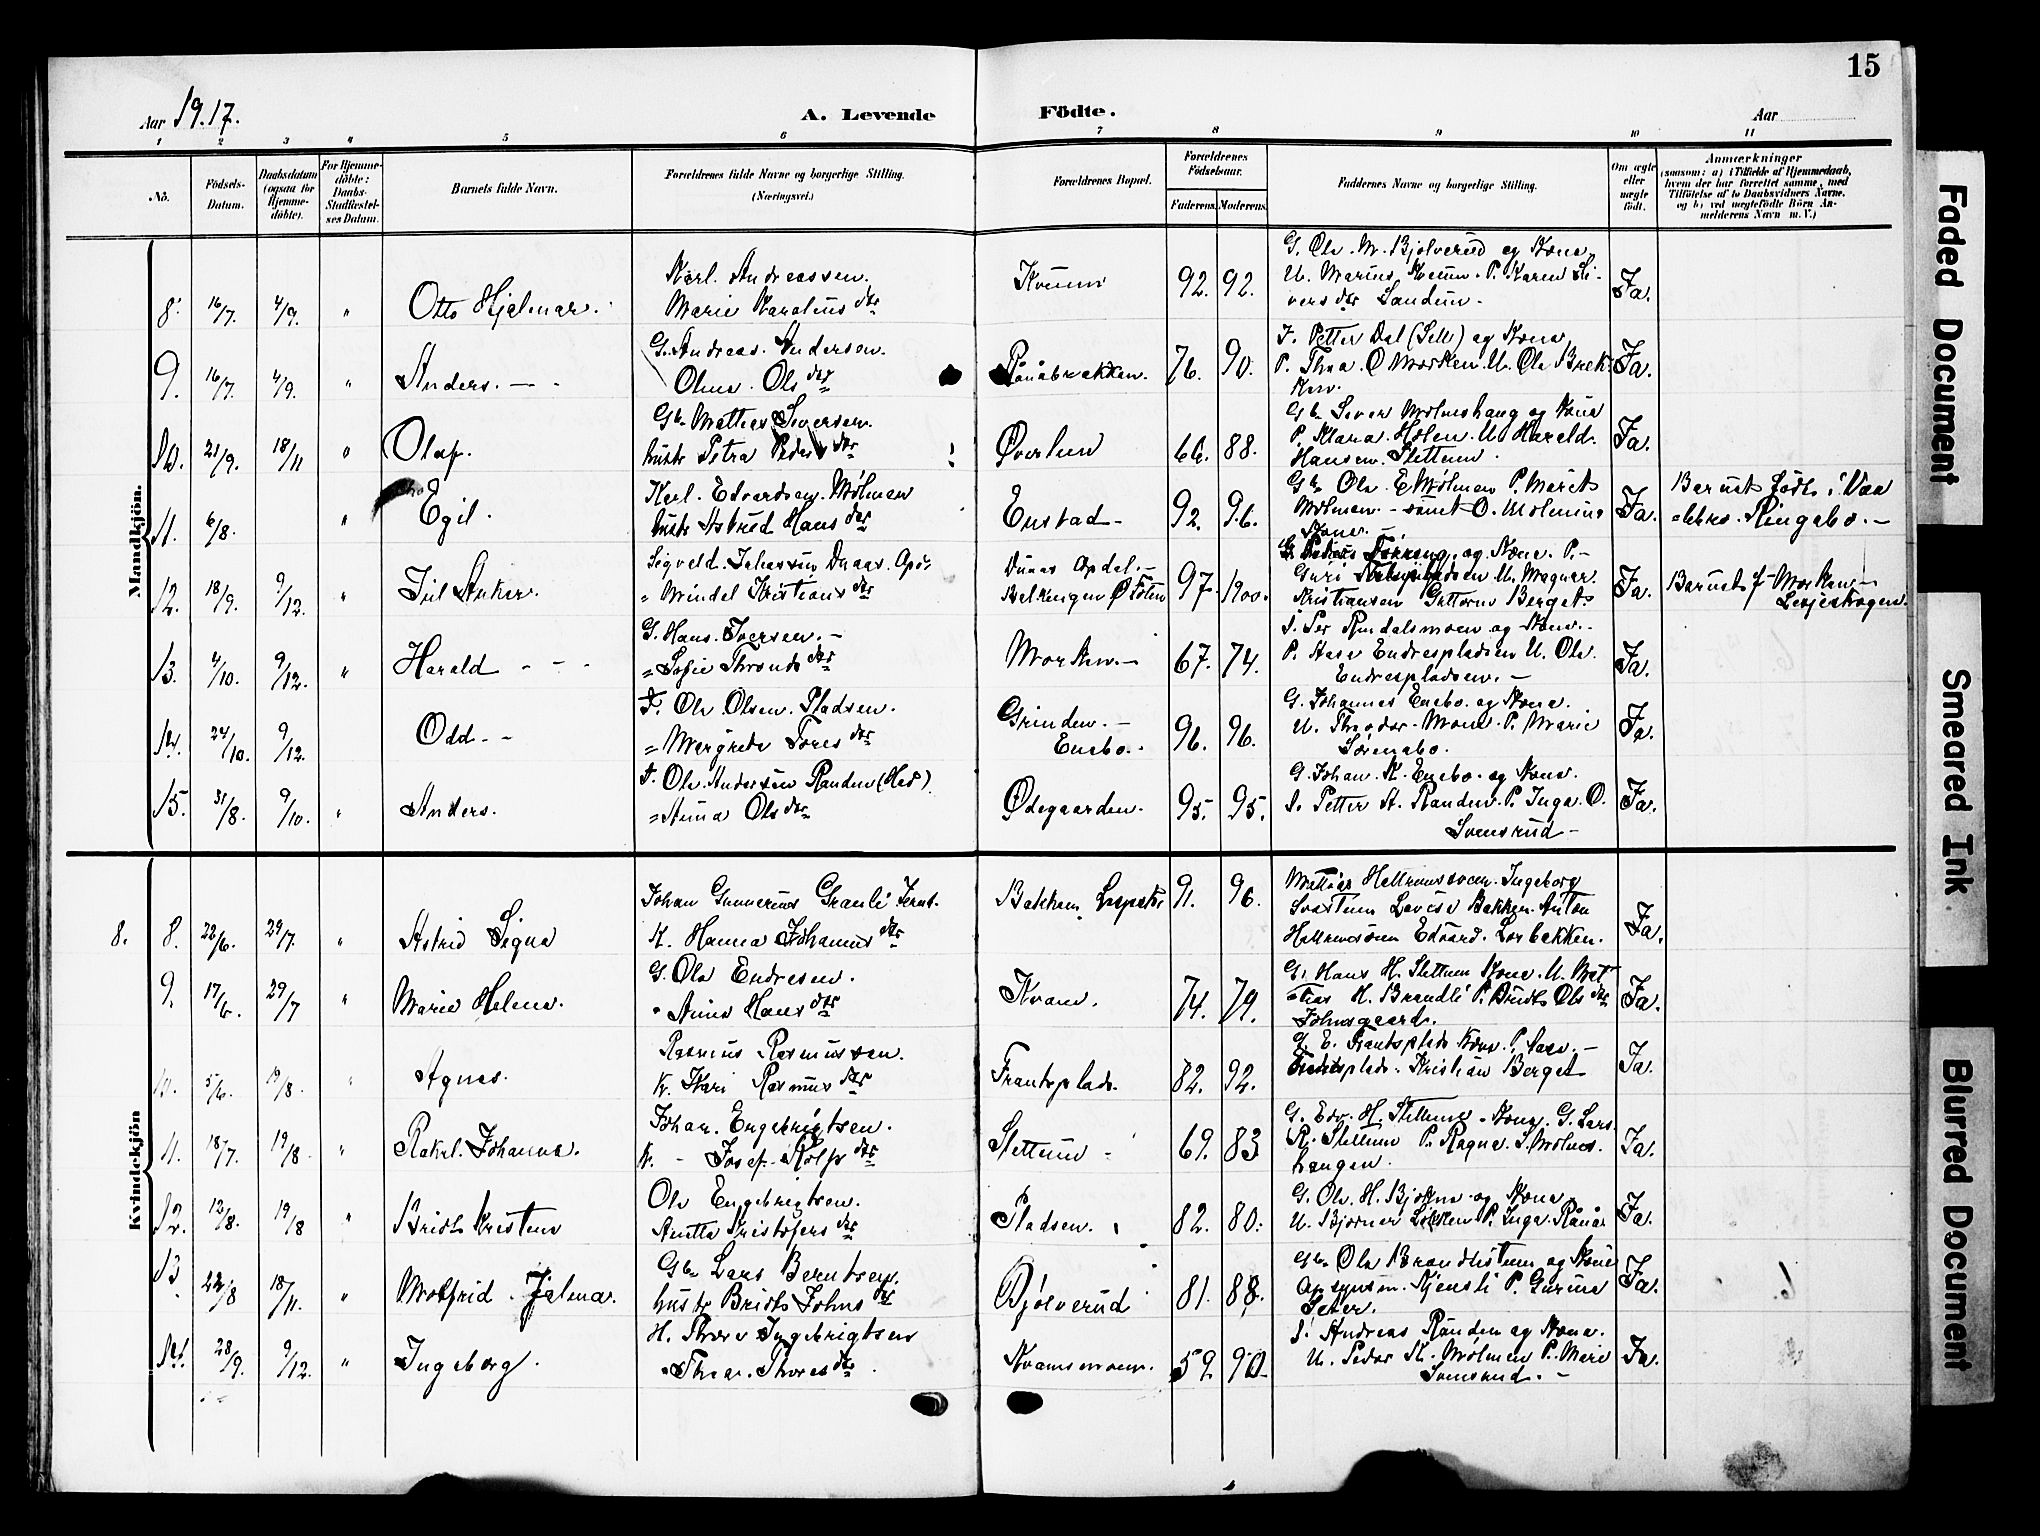 15
Aar 1917.
A. Levende Födte.
Aar
1 2 3 4 5 6 7 8 9 10 11
No.
Födsels-Datum.
Daabsdatum (ogsaa for Hjemme-döbte).
For Hjemme-döbte: Daabs-Stadfæstel-ses Datum.
Barnets fulde Navn.
Forældrenes fulde Navne og borgerlige Stilling. (Næringsvei.)
Forældrenes Bopæl.
Forældrenes Födselsaar.
Faderens. Moderens.
Faddernes Navne og borgerlige Stilling.
Om ægte eller uægte födt.
Anmærkninger
(saasom: a) i Tilfælde af Hjemmedaab, hvem der har forrettet samme, med Tilföielse af to Daabsvidners Navne, og b) ved uægtefödte Börn An-melderens Navn m. V.)
Mandkjön.
8. 16/7. 4/9. " Otto Hjalmar.
Karl. Andreassen.
Marie Karolius dtr
Kvam 92. 92.
G. Ole. M. Bjølverud og Kone
U. Marius Kvam. P. Karen Si-
vers dtr Sandum. Ja.
9. 16/7. 4/9. " Anders.
G. Andreas. Andersen.
Oline. Ols dtr
Rånåbrækken. 76. 90.
J. Petter Dal (Sell) og Kone
P. Thea O Morken. U. Ole Brek-
ken. Ja.
10. 21/9. 18/11 " Olaf.
Gbr Mathias Iversen.
hustr Petra Peders dtr
Øverlien 66. 88.
Gbr Iver Molmshaug og Kone
P. Klara. Holen. U. Harald.
Hansen. Slettum. Ja.
11. 6/8. " Egil.
Karl. Edvardsen. Mølmen
hustr Astrid Hans dtr
Enstad 92. 96.
Gbr Ole E Mølmen P. Marit
Molmen. - samt O. Molmens
Kone. Ja.
Barnet født i Vaa
lebro. Ringebo.
12. 18/9. 9/12. " Jul Anker.
Sigveld. Johansen Duaas. Op-
" Mindel Kristians dtr
Duaas Opdal.
Bekkengen Ø Folen 97. 1900.
Kristiansen Guttorm Berget Ja.
Barnet f Morken
Lesjeskogen.
13. 4/10. 9/12. " Harald
G. Hans. Iversen.
" Sofie Thronds dtr
Morken. 67. 74.
I. Per Rundalsmoen og Kone.
P. Aase Endrespladsen U. Ole.
Endrespladsen. Ja.
14. 24/10. 9/12. Odd.
F. Ole. Olsen. Pladsen.
" Margrete Tores dtr
Grinden.
Enebo. 96. 96.
G. Johannes Enebo. og Kone.
U. Theodor. Moen. P. Marie
Sørenebo. Ja.
15. 31/8. 9/10. " Anders.
F. Ole Andersen Randen (Hed).
" Anna Ols dtr
Ødegaarden. 95. 95.
G. Johan. K. Enebo. og Kone.
I. Petter A. Randen. P. Inga. O.
Svensrud Ja.
Kvindekjön
8. 8. 22/6. 29/7. " Astrid Signa
Johan Gunnerius Granli Jernb.
K. Hanna Johannes dtr
Bakken Lesjesk. 91. 96.
Mathias Hellremsmoen. Ingeborg
Svartum Lovise Bakken. Anton
Hellremsmoen Edvard. Lorbekken. Ja.
9. 17/6. 29/7 " Marie Helene.
G. Ole Endresen.
" Anne Hans dtr
Kvam. 74. 79.
G. Hans H. Slettum Kone. U. Mat-
hias H. Brandli P. Brit Ols dtr
Johnsgaard. Ja.
10. 5/6. 19/8. " Agnes.
Rasmus Rasmussen.
K. Kari Rasmus dtr
Frantsplads. 82. 92.
G. E. Frantsplads Kone. P. Aase.
Frantsplads. Kristian Berget Ja.
11. 18/7. 19/8. " Rakel. Johanna.
Johan. Engebrigtsen.
K. - Josef. Rolf dtr
Slettum 69. 83
G. Edv. H. Slettum. Kone. G. Lars
R. Slettum P. Ragna. I. Molms.
haugen. Ja.
12. 12/8. 19/8 " Bridt Kristens
Ole Engebrigtsen.
Anetta Kristofers dtr
Pladsen. 82. 80.
G. Ole. H. Bjokne og Kone
U. Bjorner Lokken P. Inga Rånår Ja.
13 22/8 18/11. " Molfrid. Jelma.
Gbr Lars Berntsen.
hustr Bridt Johns dtr
Bjølverud 81. 88.
Gbr Ole Brandlistuen og Kone
Opsynsm. Kjensli P. Gurine
Seter. Ja.
14. 28/9. 9/12. " Ingeborg.
H. Thore Ingebrigtsen
" Thea. Thores dtr
Kvamsmoen. 59. 90.
I. Andreas Randen og Kone.
U. Peder K. Mølmen P. Mari
Svensrud. Ja.
Faded Document
Smeared Ink
Blurred Document